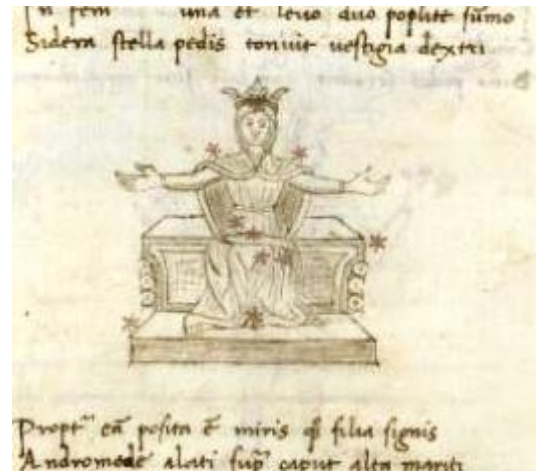 In fem una et levo duo poplite sumo
Sidera stella pedis tonuit vestigia dextri
Propt ea posita e miris filia signis
Andromede alati sup caput alta mariti